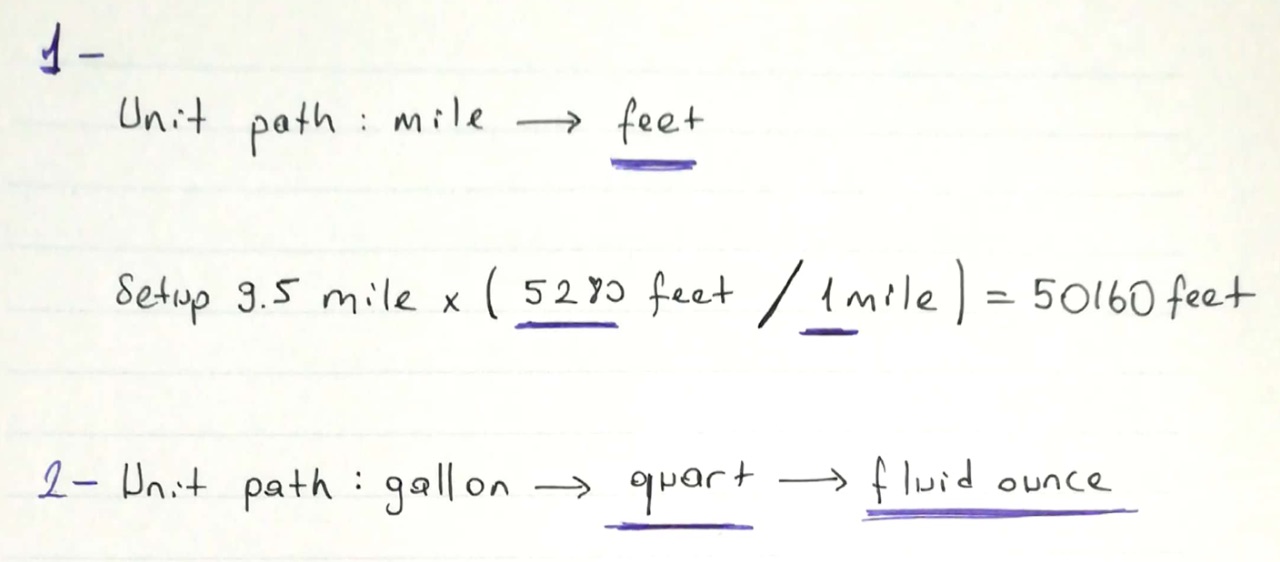 1-
Unit path : mile → feet
Setup 9.5 mile x ( 5280 feet / 1 mile ) = 50160 feet
2- Unit path : gallon → quart → fluid ounce